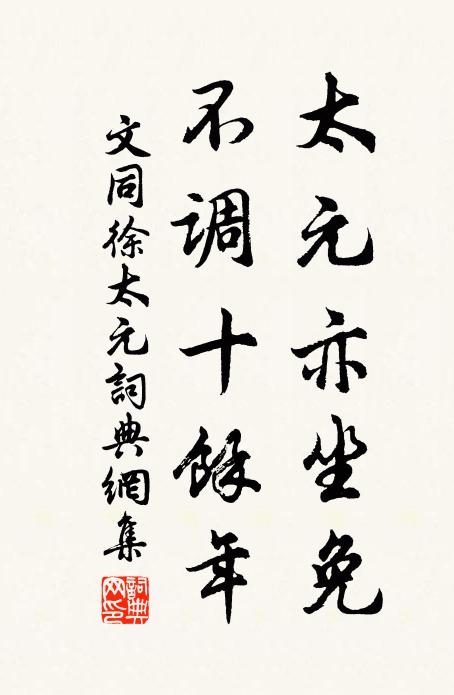 太元亦坐免
不调十餘年
文同徐太元詞典網集
詞典网印